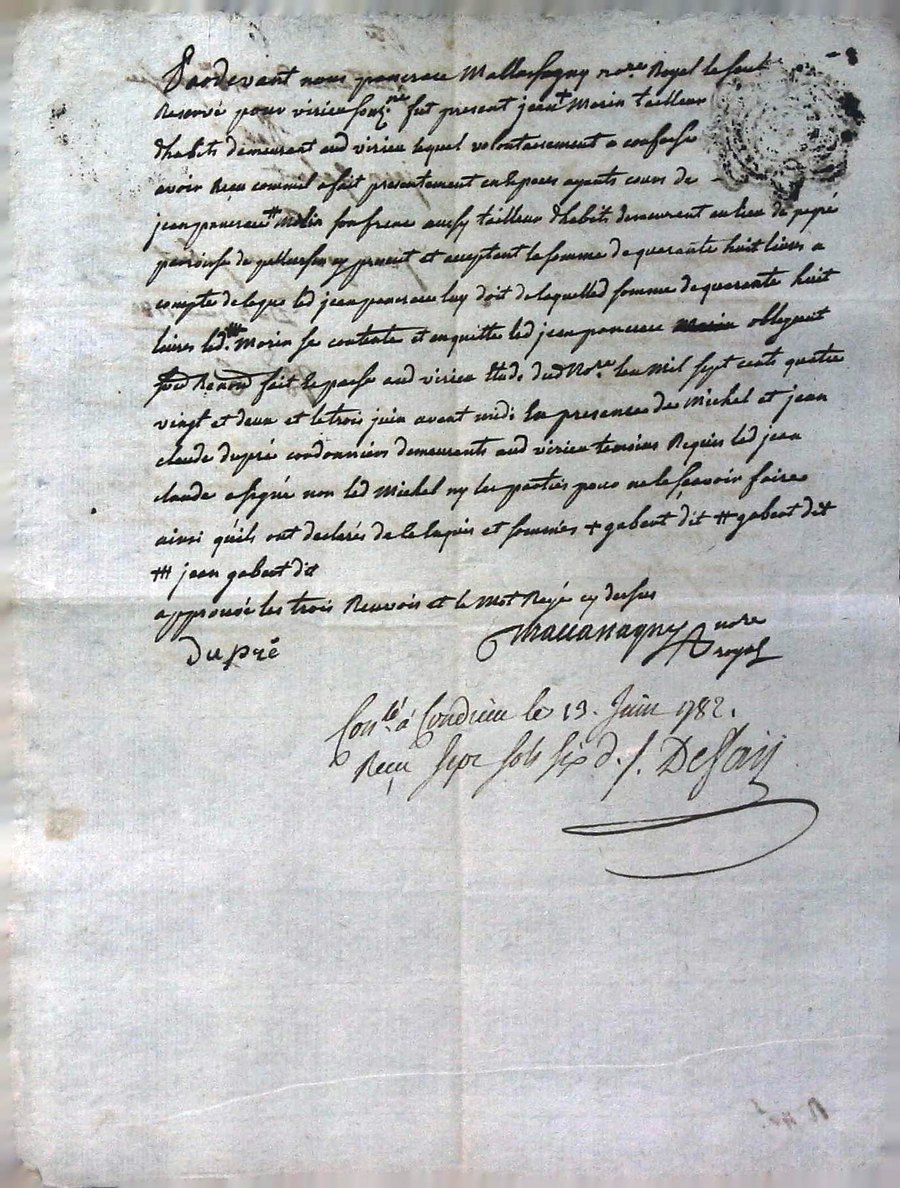 Pardevant nous pancrace Mallassagny no.re Royal le saut
Reservé pour virieu fut present jean + Morin tailleur
dhabits demeurant aud virieu lequel volontairement a confessé
avoir Reçu comme il a fait presentement en Especes ayants cours de
jean pancrace ++ Morin son frere aussy tailleur dhabits demeurent au lieu de
paroisse de pellussin cy present et acceptant la somme de quarante huit livres a
compte de ce que led jean pancrace luy doit de laquelled somme de quarente huit
livres led. +++ Morin se contente et en quitte led jean pancrace Morin obligeant
fait et passé aud virieu Etude dud No.re Lan Mil sept cents quatre
vingt et deux et le trois juin avant midi En presences de Michel et jean
claude dupré cordonniers demeurants aud virieu temoins Requis led jean
claude a signé non led Michel ny les parties pour ne le sçavoir faire
ainsi quils ont declarés de ce Enquis et sommés + gabert dit ++ gabert dit
+++ jean gabert dit
approuvé les trois Renvois et le Mot Rayé cy dessus
dupré nore
royal
Con.lé à Condrieu le 13. Juin 1782.
Reçu sept sols six d.